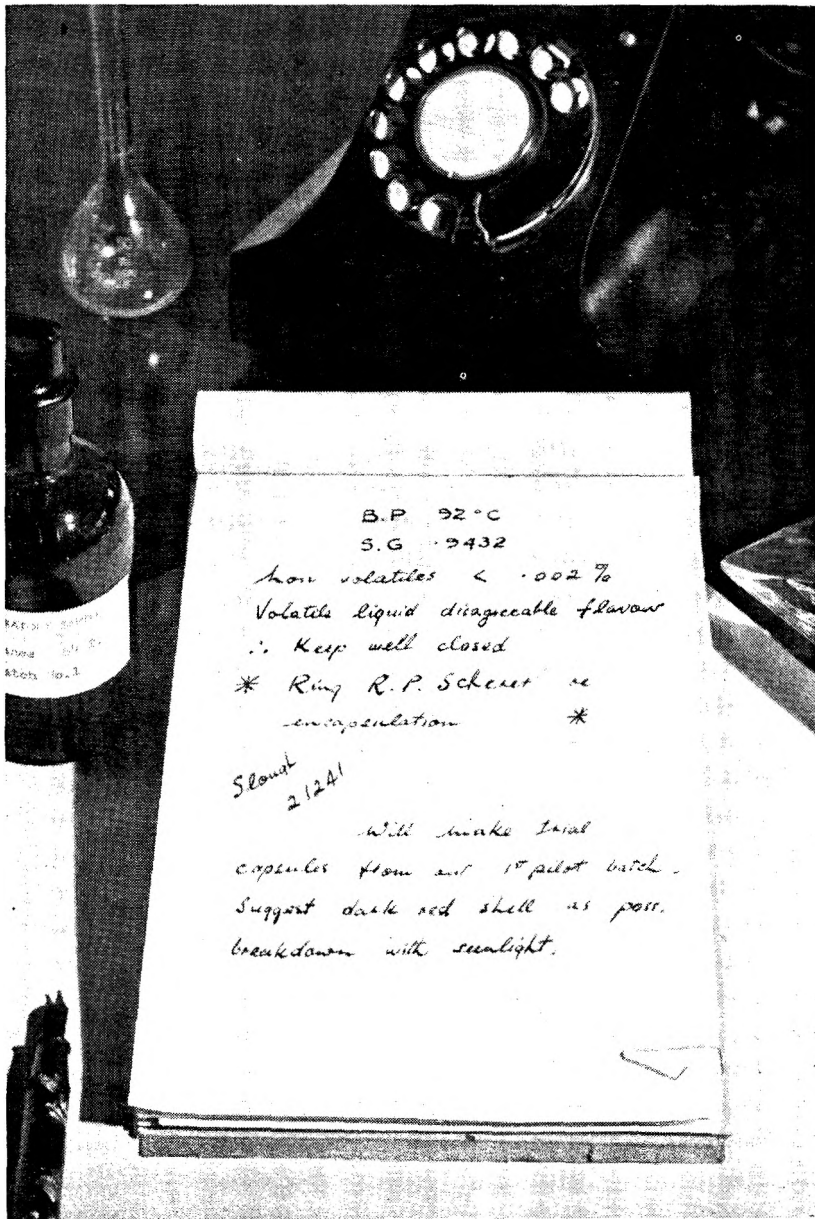 B.P 92°C
S.G ·9432
Non volatiles < ·002%
Volatile liquid disagreeable flavour
∴ Keep well closed
* Ring R.P. Scherer re
encapsulation *
Slough
21241
Will make trial
capsules from our 1st pilot batch.
Suggest dark red shell as poss.
breakdown with sunlight.
Batch No.1